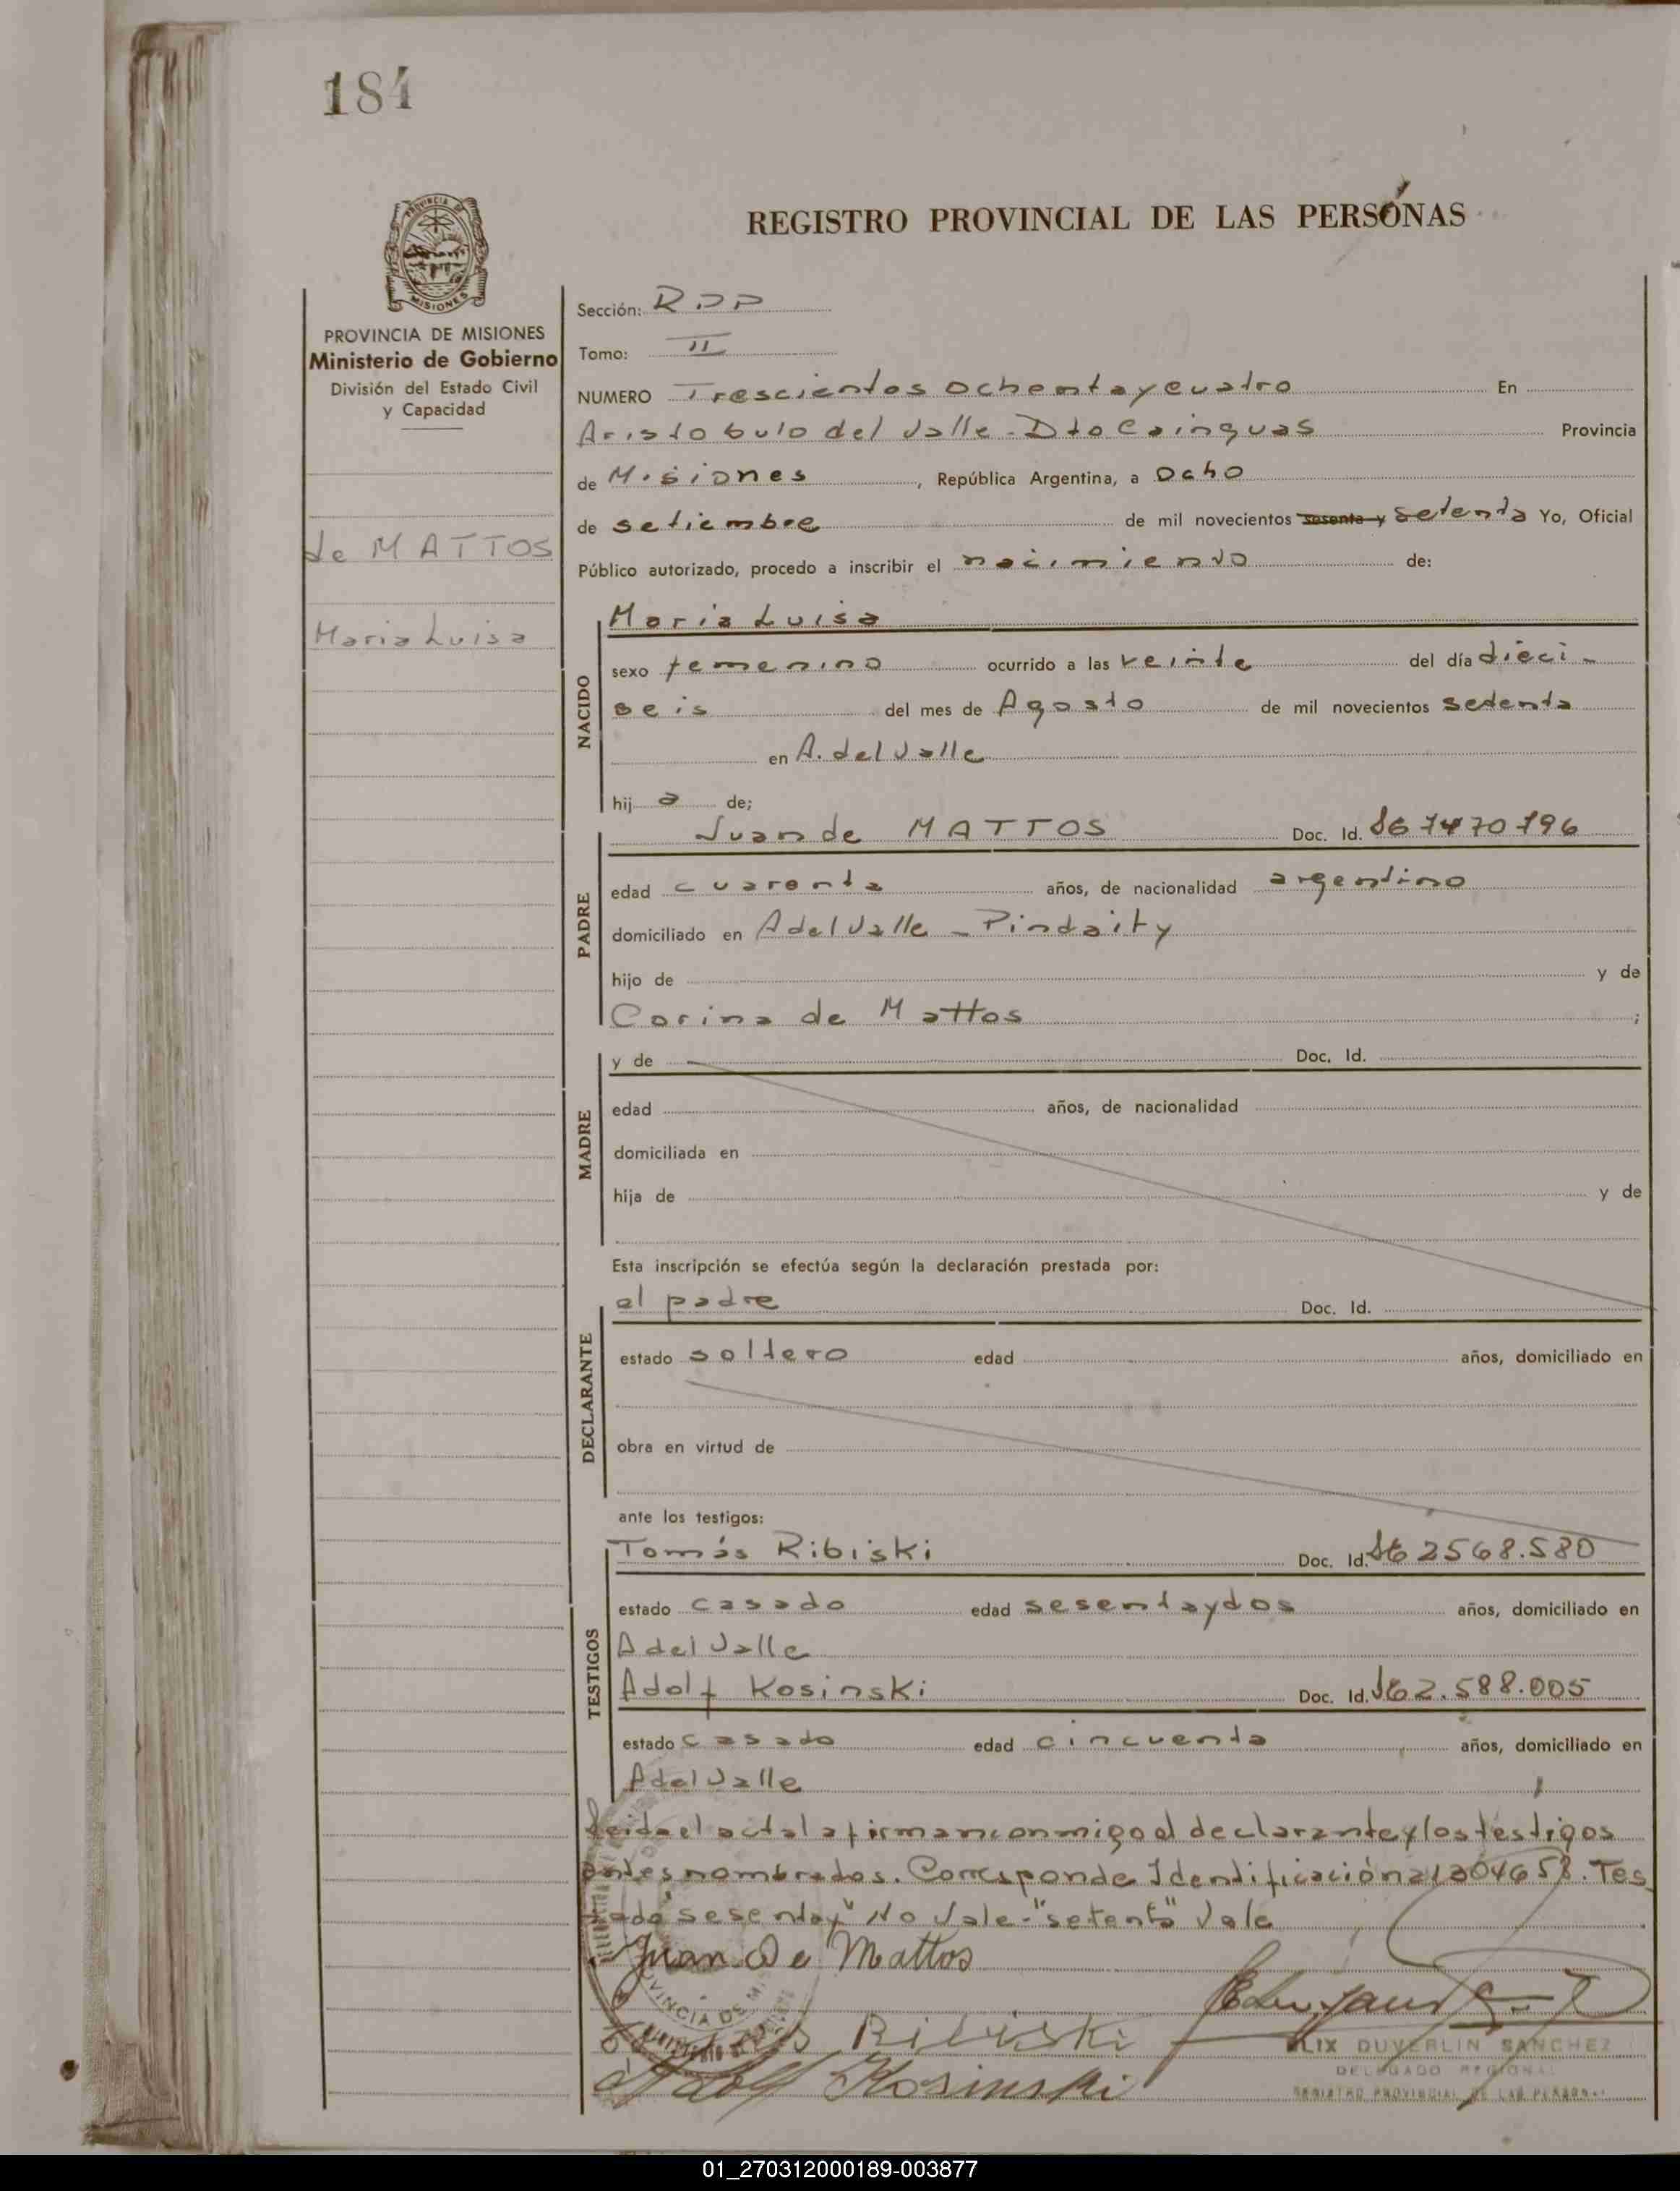 184
REGISTRO PROVINCIAL DE LAS PERSONAS
MISIONES
PROVINCIA DE MISIONES
Ministerio de Gobierno
División del Estado Civil
y Capacidad
de MATTOS
Maria Luisa
Sección: RPP
Tomo: II
NUMERO Trescientos ochenta y cuatro En
Aristobulo del Valle - Dto Cainguas Provincia
de Misiones, República Argentina, a Ocho
de setiembre de mil novecientos sesenta y setenta Yo, Oficial
Público autorizado, procedo a inscribir el nacimiento de:
NACIDO
Maria Luisa
sexo femenino ocurrido a las veinte del día dieci-
seis del mes de Agosto de mil novecientos setenta
en A. del Valle
hij a de;
PADRE
Juan de MATTOS Doc. Id.
edad cuarenta años, de nacionalidad argentino
domiciliado en A del Valle - Pindaity
hijo de y de
Corina de Mattos ;
MADRE
y de Doc. Id.
edad años, de nacionalidad
domiciliada en
hija de y de
Esta inscripción se efectúa según la declaración prestada por:
DECLARANTE
el padre Doc. Id.
estado soltero edad años, domiciliado en
obra en virtud de
ante los testigos:
TESTIGOS
Tomás Ribiski Doc. Id. 2568.580
estado casado edad sesenta y dos años, domiciliado en
A del Valle
Adolf Kosinski Doc. Id. 2.588.005
estado casado edad cincuenta años, domiciliado en
A del Valle
Leida el acta la firman conmigo el declarante y los testigos
antes nombrados. Corresponde Identificación 21304658. Tes
tado sesenta y" No Vale - "setenta" Vale
Juan De Mattos
Ribiski
Adolf Kosinski
DUVERLIN SANCHEZ
DELEGADO REGIONAL
REGISTRO PROVINCIAL DE LAS PERSONAS
01_270312000189-003877